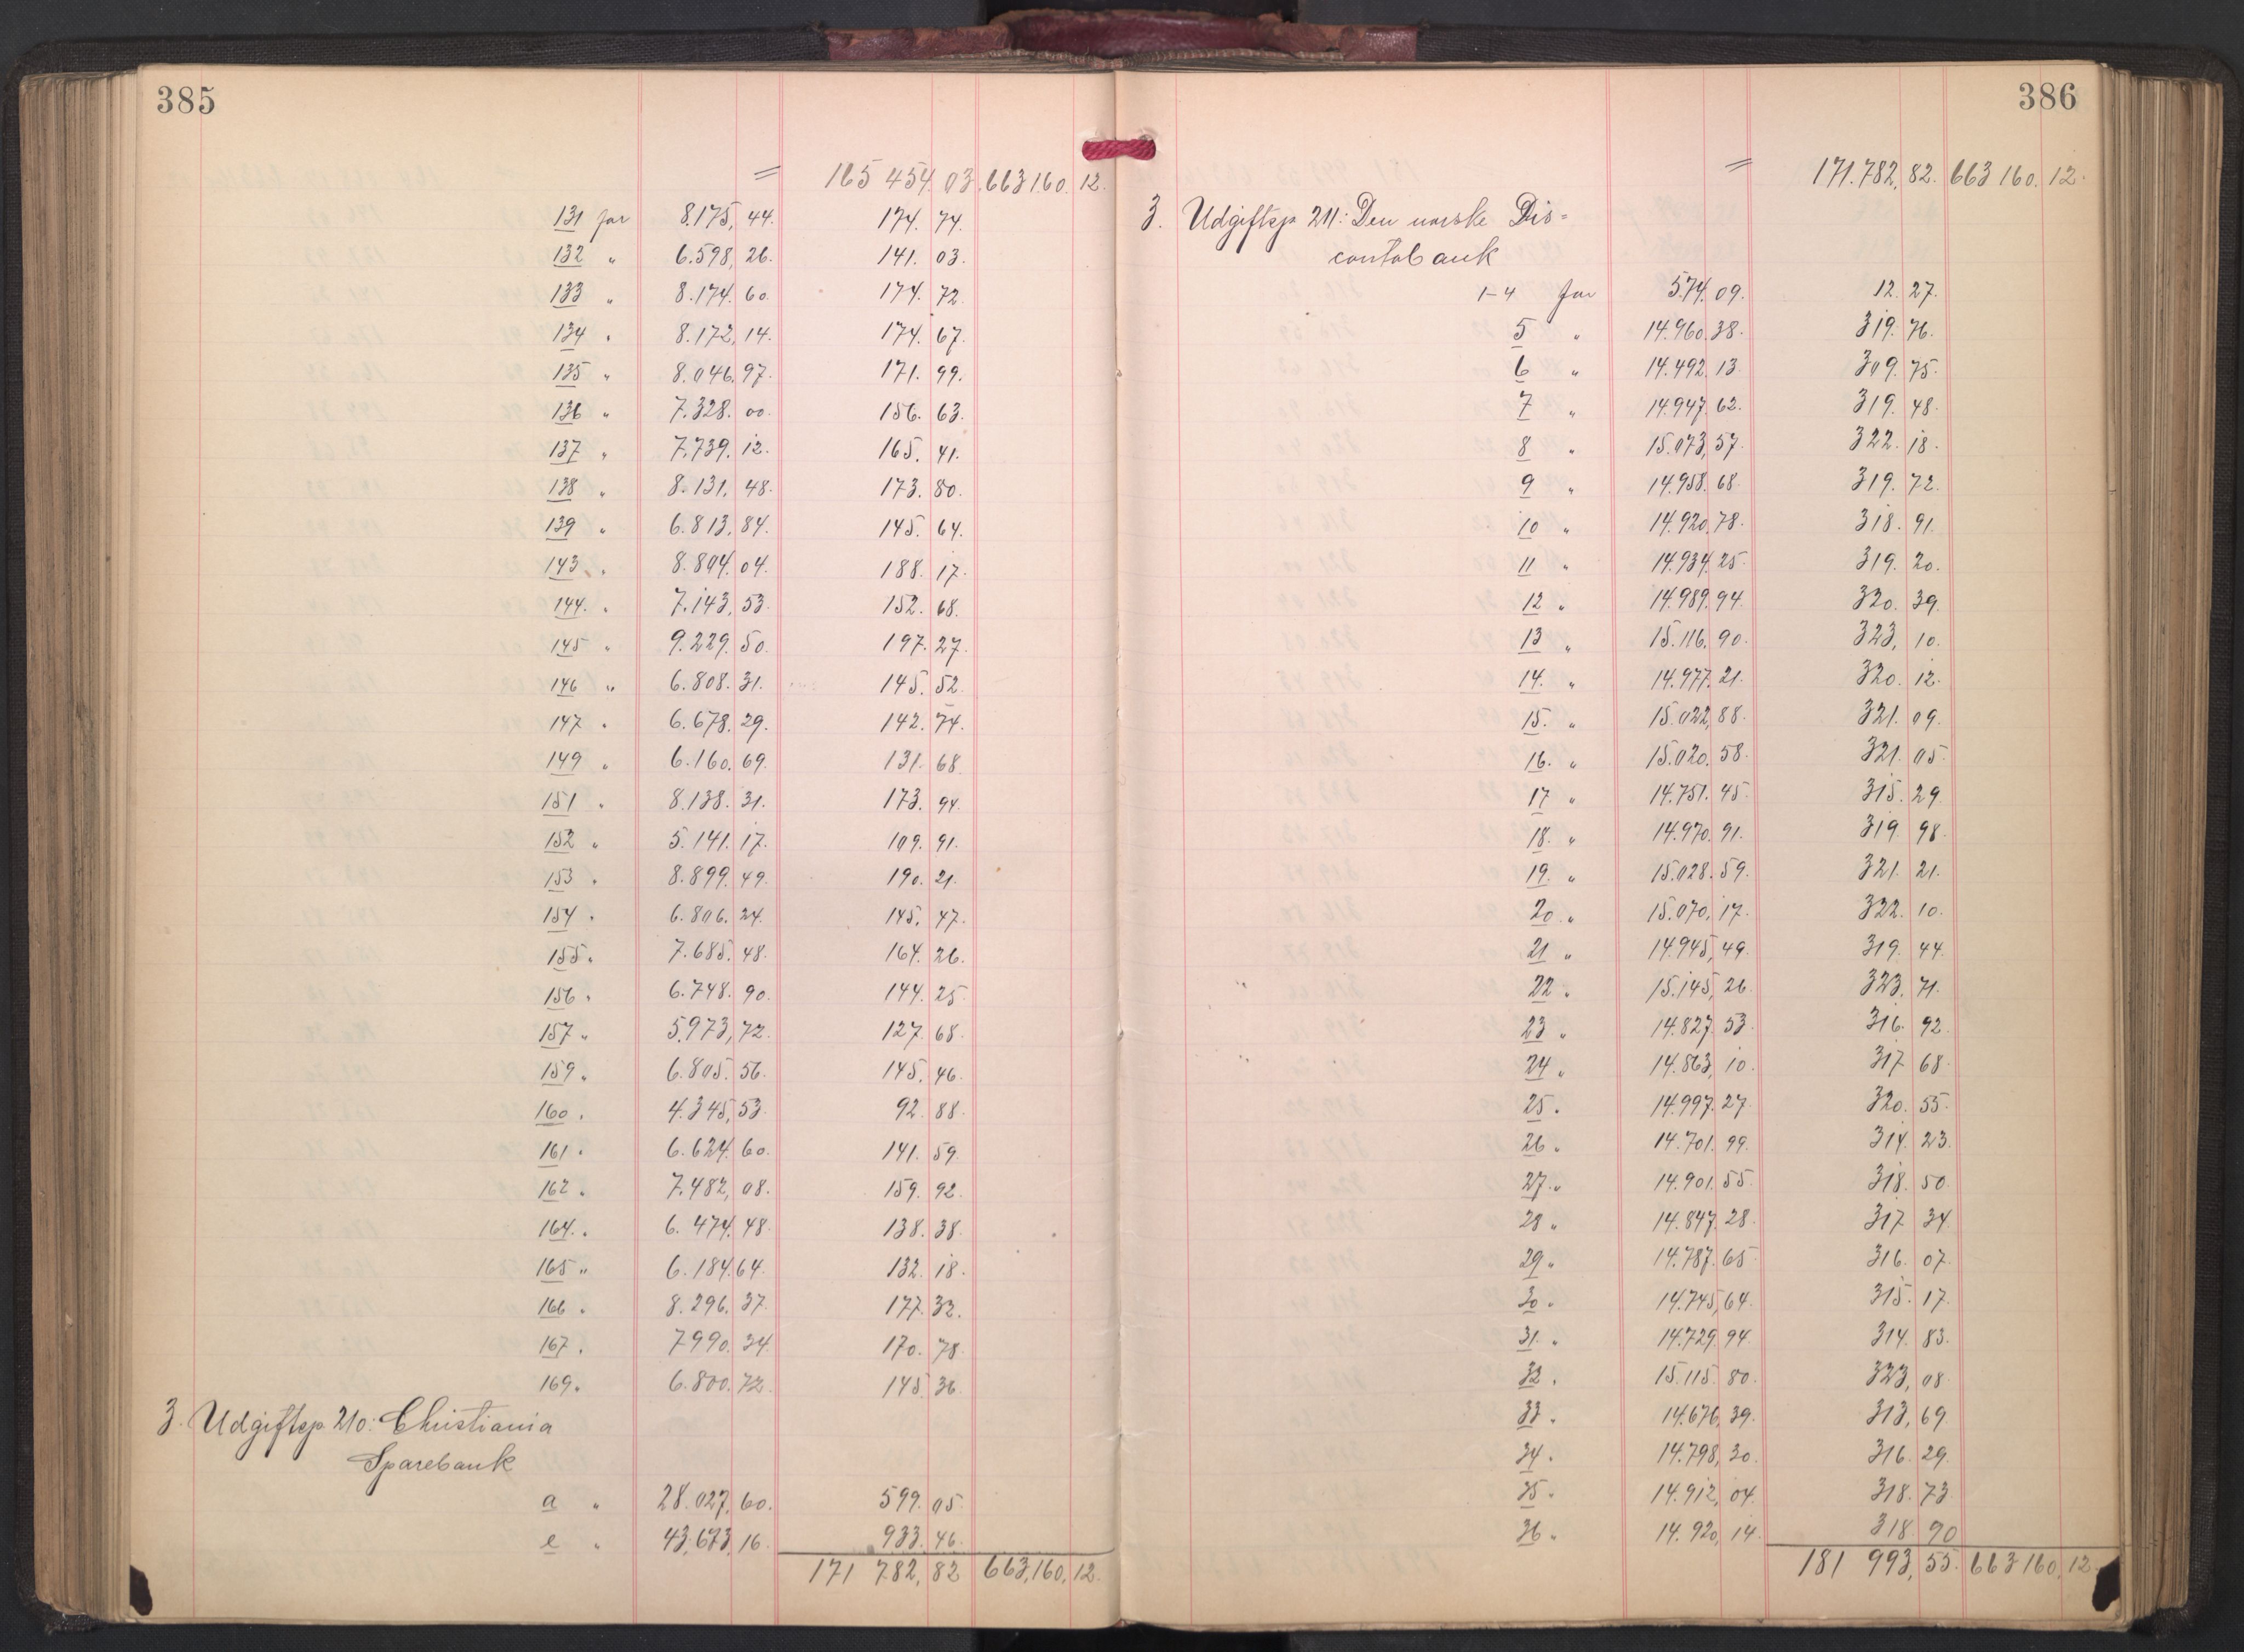 385
= 165 454 03. 663 160. 12.
131 for 8.175, 44. 174. 74.
132 " 6.598, 26. 141. 03.
133 " 8.174. 60. 174. 72.
134 " 8.172, 14. 174. 67.
135 " 8.046. 97. 171. 99.
136 " 7.328. 00. 156. 63.
137 " 7.739. 12. 165. 41.
138 " 8.131. 48. 173. 80.
139 " 6.813. 84. 145. 64.
143. " 8.804. 04. 188. 17.
144. " 7.143. 53. 152. 68.
145 " 9.229. 50. 197. 27.
146 " 6.808. 31. 145. 52.
147 " 6.678. 29. 142. 74.
149 " 6.160. 69. 131. 68.
151 " 8.138. 31. 173. 94.
152 " 5.141. 17. 109. 91.
153 " 8.899. 49. 190. 21.
154 " 6.806. 24. 145. 47.
155 " 7.685. 48. 164. 26.
156 " 6.748. 90. 144. 25.
157 " 5.973, 72. 127. 68.
159 " 6.805. 56. 145. 46.
160 " 4.345, 53. 92. 88.
161 " 6.624. 60. 141. 59.
162 " 7.482, 08. 159. 92.
164. " 6.474. 48. 138. 38.
165 " 6.184. 64. 132. 18.
166 " 8.296. 37. 177. 32.
167 " 7990. 34. 170. 78.
169 " 6.800. 72. 145. 36.
3. Udgiftsp. 210: Christiania
Sparebank
a " 28.027. 60. 599. 05.
e " 43,673, 16. 933. 46.
171 782, 82 663, 160, 12.
386
= 171.782, 82. 663 160. 12.
3. Udgiftsp 211: Den norske Dis=
contobank
1-4 for 574. 09. 12. 27.
5 " 14.960. 38. 319. 76.
6 " 14.492. 13. 309. 75.
7 " 14.947. 62. 319. 48.
8 " 15.073, 57. 322. 18.
9 " 14.958. 68. 319. 72.
10 " 14.920. 78. 318. 91.
11 " 14.934. 25. 319. 20.
12 " 14.989. 94. 320. 39.
13 " 15.116. 90. 323, 10.
14. " 14.977. 21. 320. 12.
15. " 15.022, 88. 321. 09.
16. " 15.020. 58. 321. 05.
17 " 14.751. 45. 315. 29.
18. " 14.970. 91. 319. 98.
19. " 15.028. 59. 321. 21.
20. " 15.070, 17. 322. 10.
21 " 14.945, 49. 319. 44.
22 " 15.145, 26. 323. 71.
23 " 14.827. 53. 316. 92.
24 " 14.863, 10. 317 68.
25. " 14.997. 27. 320. 55.
26 " 14.701. 99. 314. 23.
27. " 14.901. 55. 318. 50.
28 " 14.847. 28. 317 34.
29 " 14.787. 65. 316. 07.
30 " 14.745, 64. 315. 17.
31. " 14.729. 94. 314. 83.
32 " 15.115. 80. 323, 08.
33 " 14.676, 39. 313, 69.
34 " 14.798, 30. 316. 29.
35 " 14.912, 04. 318. 73.
36 " 14.920, 14. 318. 90
181 993, 55. 663 160, 12.